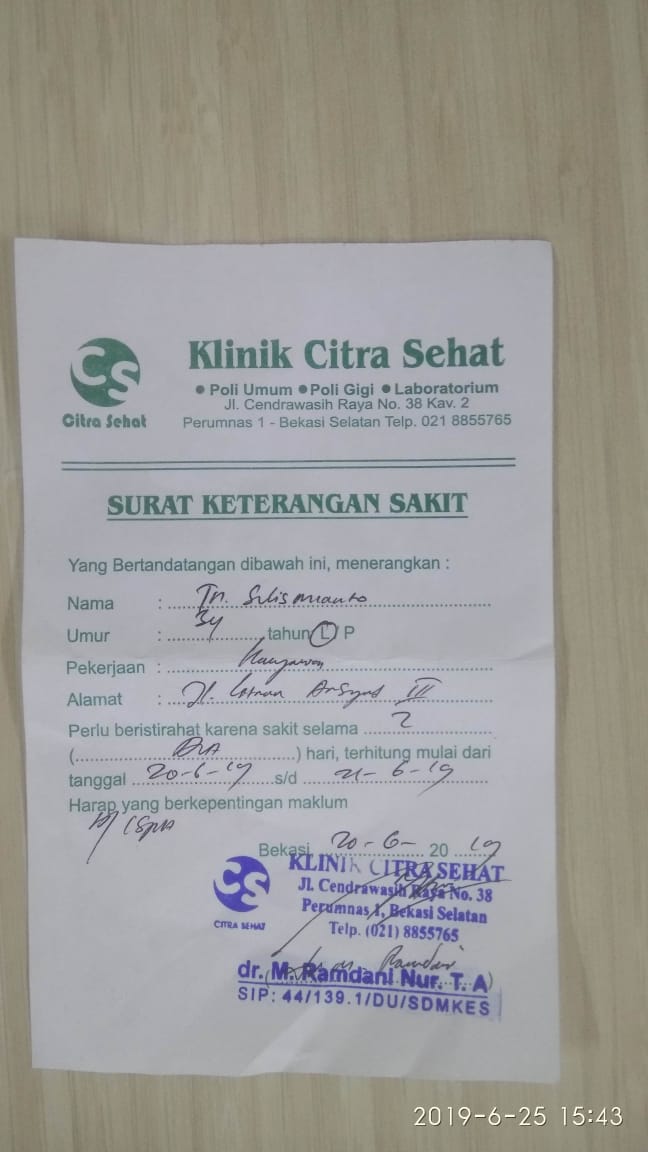 CS
Citra Sehat
Klinik Citra Sehat
• Poli Umum • Poli Gigi • Laboratorium
Jl. Cendrawasih Raya No. 38 Kav. 2
Perumnas 1 - Bekasi Selatan Telp. 021 8855765
SURAT KETERANGAN SAKIT
Yang Bertandatangan dibawah ini, menerangkan :
Nama : Tn. Sulismianto
Umur : 34 tahun L P
Pekerjaan : Karyawan
Alamat : Jl. III
Perlu beristirahat karena sakit selama 2
(Dua) hari, terhitung mulai dari
tanggal 20-6-19 s/d 21-6-19
Harap yang berkepentingan maklum
Bekasi 20-6- 20 19
CS
CITRA SEHAT
KLINIK CITRA SEHAT
Jl. Cendrawasih Raya No. 38
Perumnas 1, Bekasi Selatan
Telp. (021) 8855765
dr. M. Ramdani Nur. T. A
SIP: 44/139.1/DU/SDMKES
2019-6-25 15:43